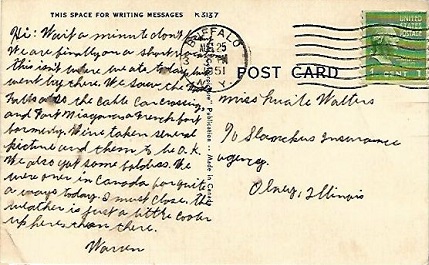 THIS SPACE FOR WRITING MESSAGES K 5137
Hi: Wait a minute don't
We are finally on a short
this isn't where we ate today but
went by there. We saw the
Falls also the Cable Car crossing
and Fort a French fort
formerly. We've taken several
picture and them to be O.K.
We also got some folders. We
were over in Canada for quite
a ways today. must close. The
weather is just a little cooler
up here than there.
Warren
Made in Canada
BUFFALO
AUG 25
PM
1951
N.Y.
UNITED
STATES
POSTAGE
1 CENT 1
POST CARD
Miss Walters
c/o Insurance
agency.
Olney, Illinois